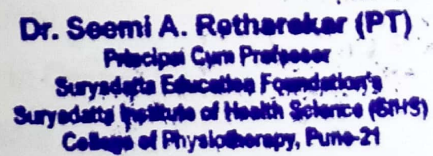 Dr. Seemi A. Retharekar (PT)
Principal Cum Professor
Suryadatta Education Foundation's
Suryadatta Institute of Health Science (SIHS)
College of Physiotherapy, Pune-21